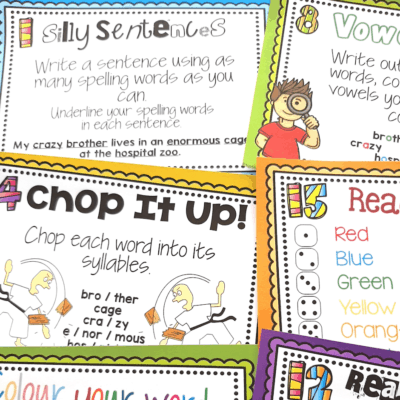 1 Silly Sentences
Write a sentence using as
many spelling words as you
can.
Underline your spelling words
in each sentence
My crazy brother lives in an enormous cage
at the hospital zoo.
8 Vowe
Write out
words, co
vowels yo
co
bro
crazy
hosp
4 Chop It Up!
Chop each word into its
syllables.
bro / ther
cage
cra / zy
e / nor / mous
15 Rea
Red
Blue
Green
Yellow
Orang
Colour your wor
12 Rea